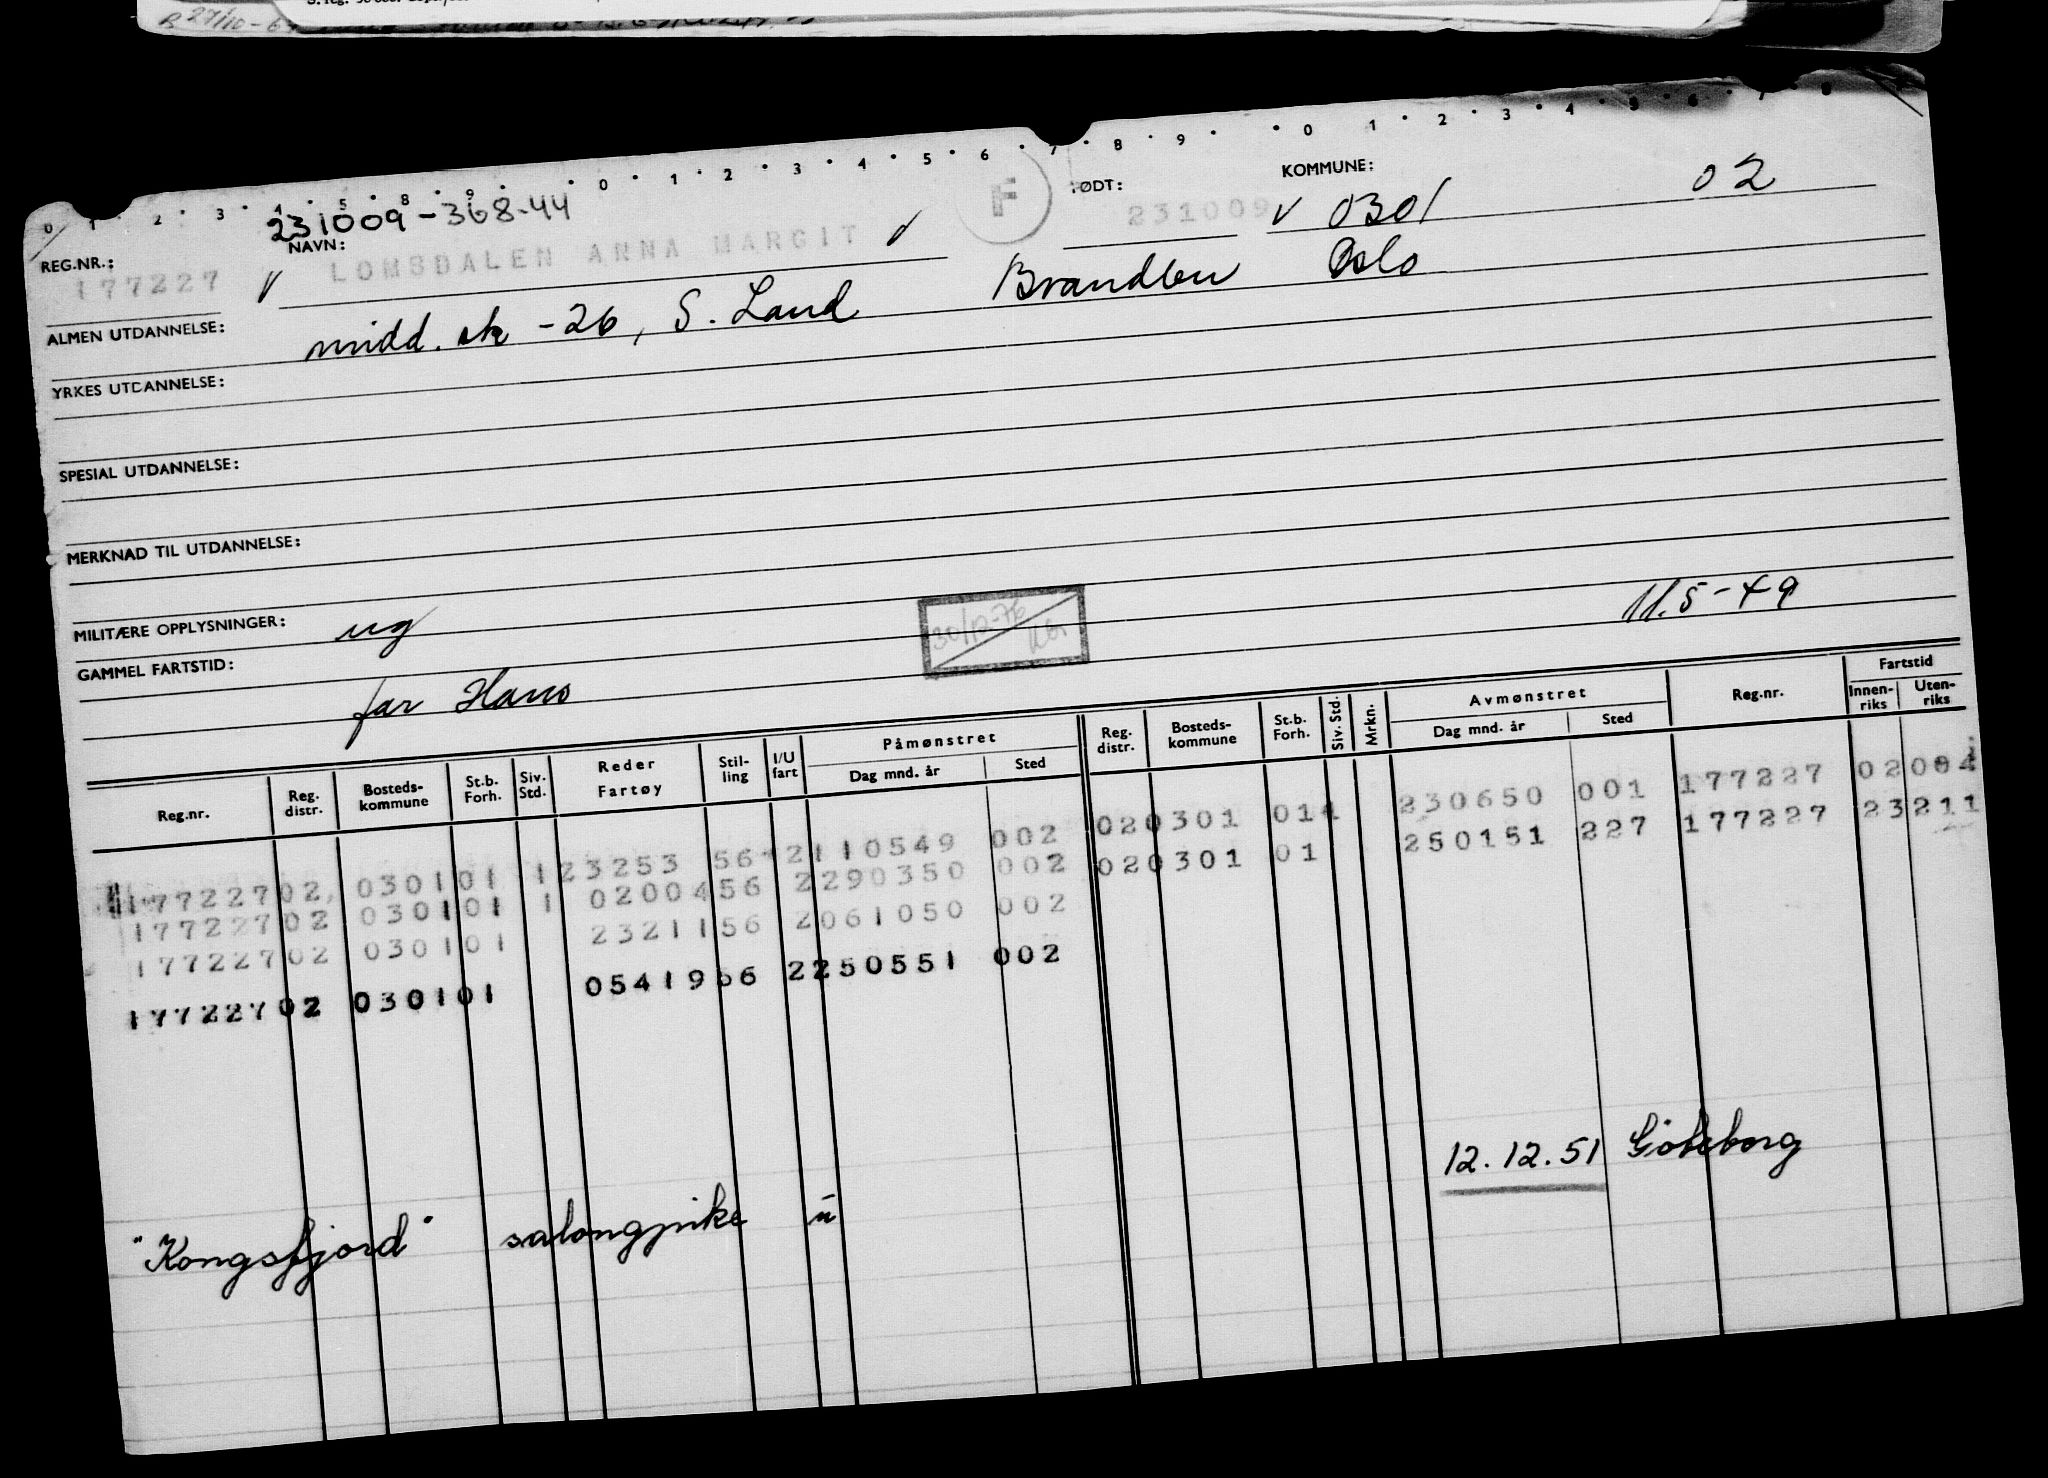 B 27/10-6
0 1 2 3 4 5 8 9 0 1 2 3 4 5 6 7 8 9 0 1 2 3 4 5 6 7 8
231009-368-44
REG.NR.: NAVN: FØDT: KOMMUNE:
177227 V LOMSDALEN ANNA MARGIT V F 231009 V 0301 02
ALMEN UTDANNELSE: midd. sk -26, S. Land Brandbu Oslo
YRKES UTDANNELSE:
SPESIAL UTDANNELSE:
MERKNAD TIL UTDANNELSE:
MILITÆRE OPPLYSNINGER: ug 30/12-76
GAMMEL FARTSTID: 11.5-49
far Hans
Reg.nr. Reg. distr. Bosteds-kommune St.b. Forh. Siv. Std. Reder Fartøy Stil-ling I/U fart Påmønstret Dag mnd. år Sted Reg. distr. Bosteds-kommune St.b. Forh. Siv. Std. Mrkn. Avmønstret Dag mnd. år Sted Reg.nr. Fartstid Innen-riks Uten-riks
177227 02 0301 01 1 23253 56 2 110549 002 02 0301 01 230650 001 177227 02
177227 02 0301 01 1 02004 56 2 290350 002 02 0301 01 250151 227 177227 23211
177227 02 0301 01 23211 56 2 061050 002
177227 02 0301 01 05419 56 2 250551 002
12.12.51 Göteborg
"Kongsfjord" salongpike u